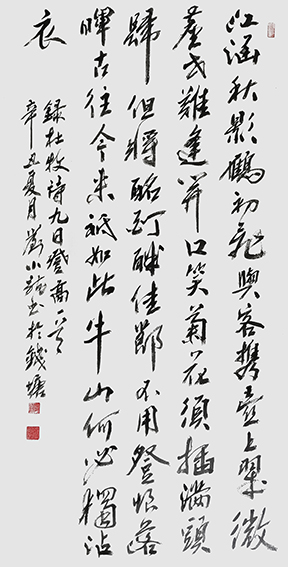 江涵秋影鶴初飛與客携壺上翠微
塵世難逢開口笑菊花須插滿頭
歸但將酩酊酬佳節不用登恨落
暉古往今来祇如此牛山何必獨沾
衣
録杜牧诗九日登高一首
辛丑夏月劉小书於錢塘